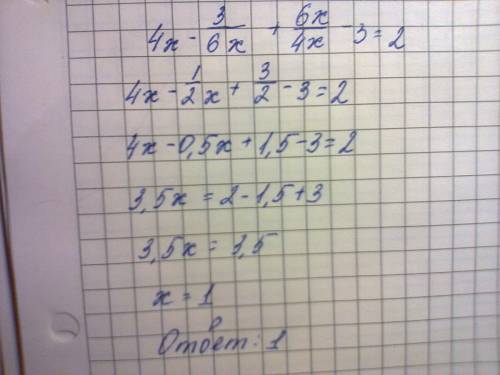 4x - 3/6x + 6x/4x - 3 = 2
4x - 1/2x + 3/2 - 3 = 2
4x - 0,5x + 1,5 - 3 = 2
3,5x = 2 - 1,5 + 3
3,5x = 3,5
x = 1
Ответ: 1